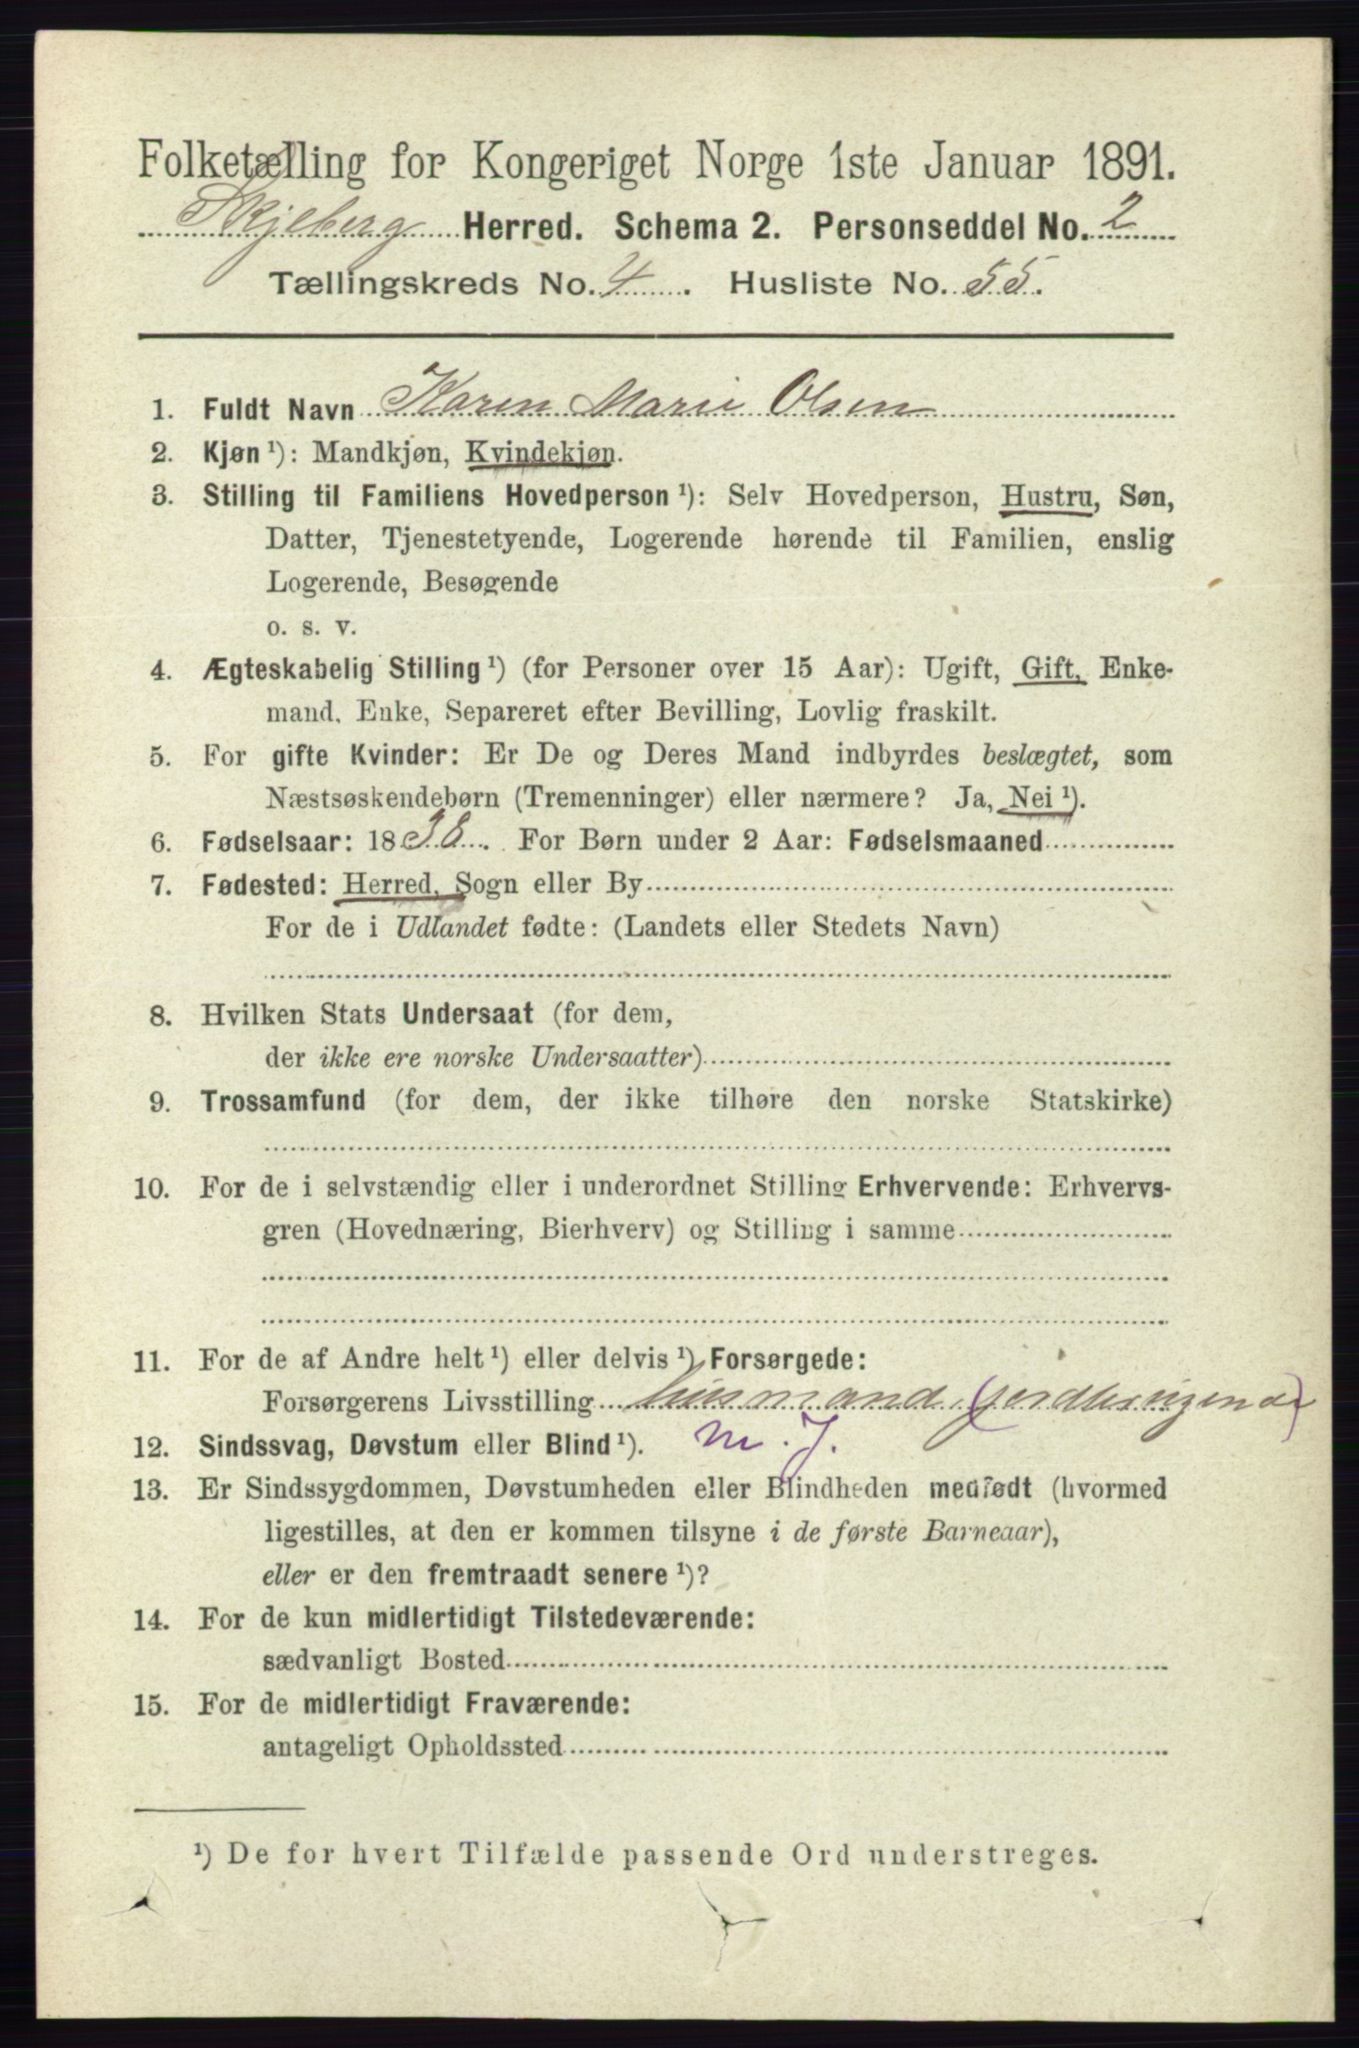 Folketælling for Kongeriget Norge 1ste Januar 1891.
Skjeberg Herred. Schema 2. Personseddel No. 2
Tællingskreds No. 4. Husliste No. 55.
1. Fuldt Navn Karen Marie Olsen
2. Kjøn ¹): Mandkjøn, Kvindekjøn.
3. Stilling til Familiens Hovedperson ¹): Selv Hovedperson, Hustru, Søn,
Datter, Tjenestetyende, Logerende hørende til Familien, enslig
Logerende, Besøgende
o. s. v.
4. Ægteskabelig Stilling ¹) (for Personer over 15 Aar): Ugift, Gift, Enke-
mand, Enke, Separeret efter Bevilling, Lovlig fraskilt.
5. For gifte Kvinder: Er De og Deres Mand indbyrdes beslægtet, som
Næstsøskendebørn (Tremenninger) eller nærmere? Ja, Nei ¹).
6. Fødselsaar: 1838. For Børn under 2 Aar: Fødselsmaaned
7. Fødested: Herred, Sogn eller By
For de i Udlandet fødte: (Landets eller Stedets Navn)
8. Hvilken Stats Undersaat (for dem,
der ikke ere norske Undersaatter)
9. Trossamfund (for dem, der ikke tilhøre den norske Statskirke)
10. For de i selvstændig eller i underordnet Stilling Erhvervende: Erhvervs-
gren (Hovednæring, Bierhverv) og Stilling i samme
11. For de af Andre helt ¹) eller delvis ¹) Forsørgede:
Forsørgerens Livsstilling husmand (jordbrugende)
12. Sindssvag, Døvstum eller Blind ¹). m. J.
13. Er Sindssygdommen, Døvstumheden eller Blindheden medfødt (hvormed
ligestilles, at den er kommen tilsyne i de første Barneaar),
eller er den fremtraadt senere ¹)?
14. For de kun midlertidigt Tilstedeværende:
sædvanligt Bosted
15. For de midlertidigt Fraværende:
antageligt Opholdssted
¹) De for hvert Tilfælde passende Ord understreges.